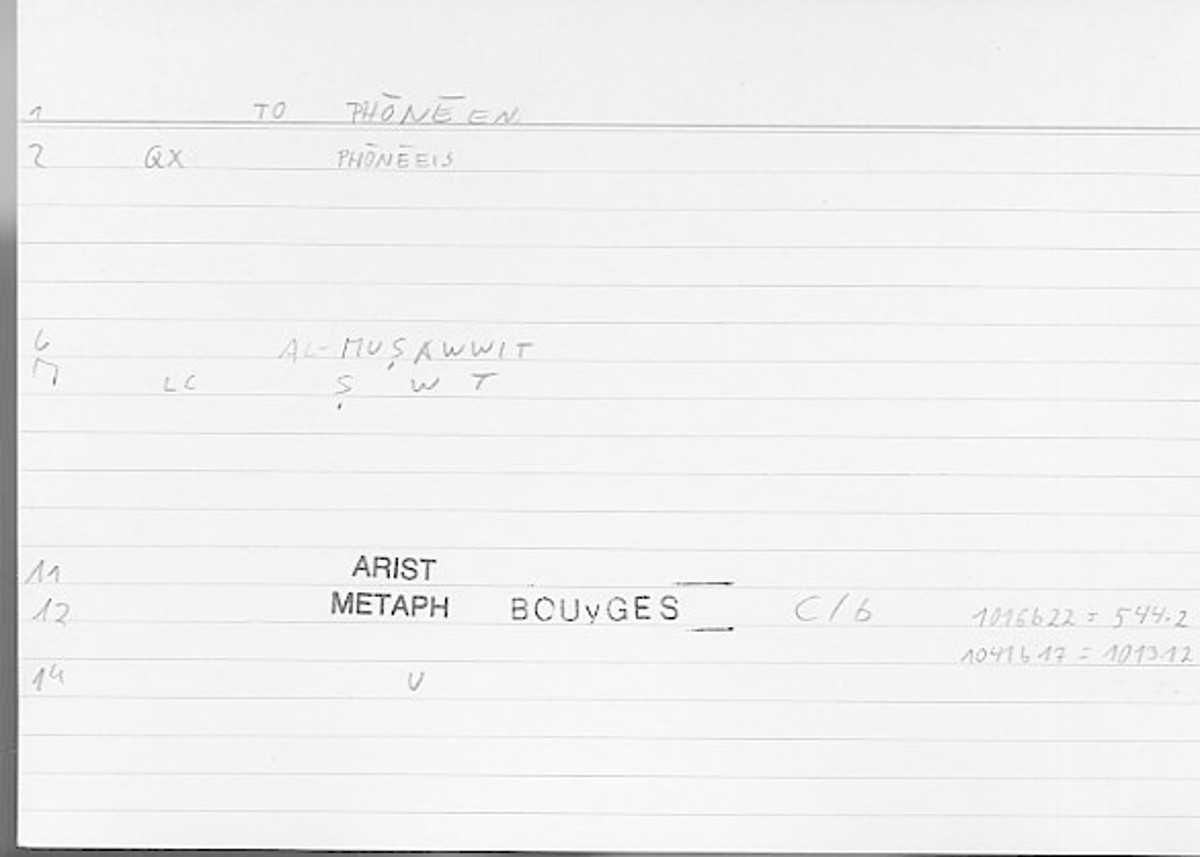 1 TO PHŌNĒEN
2 QX PHŌNĒEIS
6 AL-MUṢAWWIT
7 LC Ṣ W T
11 ARIST
12 METAPH BOUyGES C/6 1016b22 = 544.2
1041b17 = 1013.12
14 V